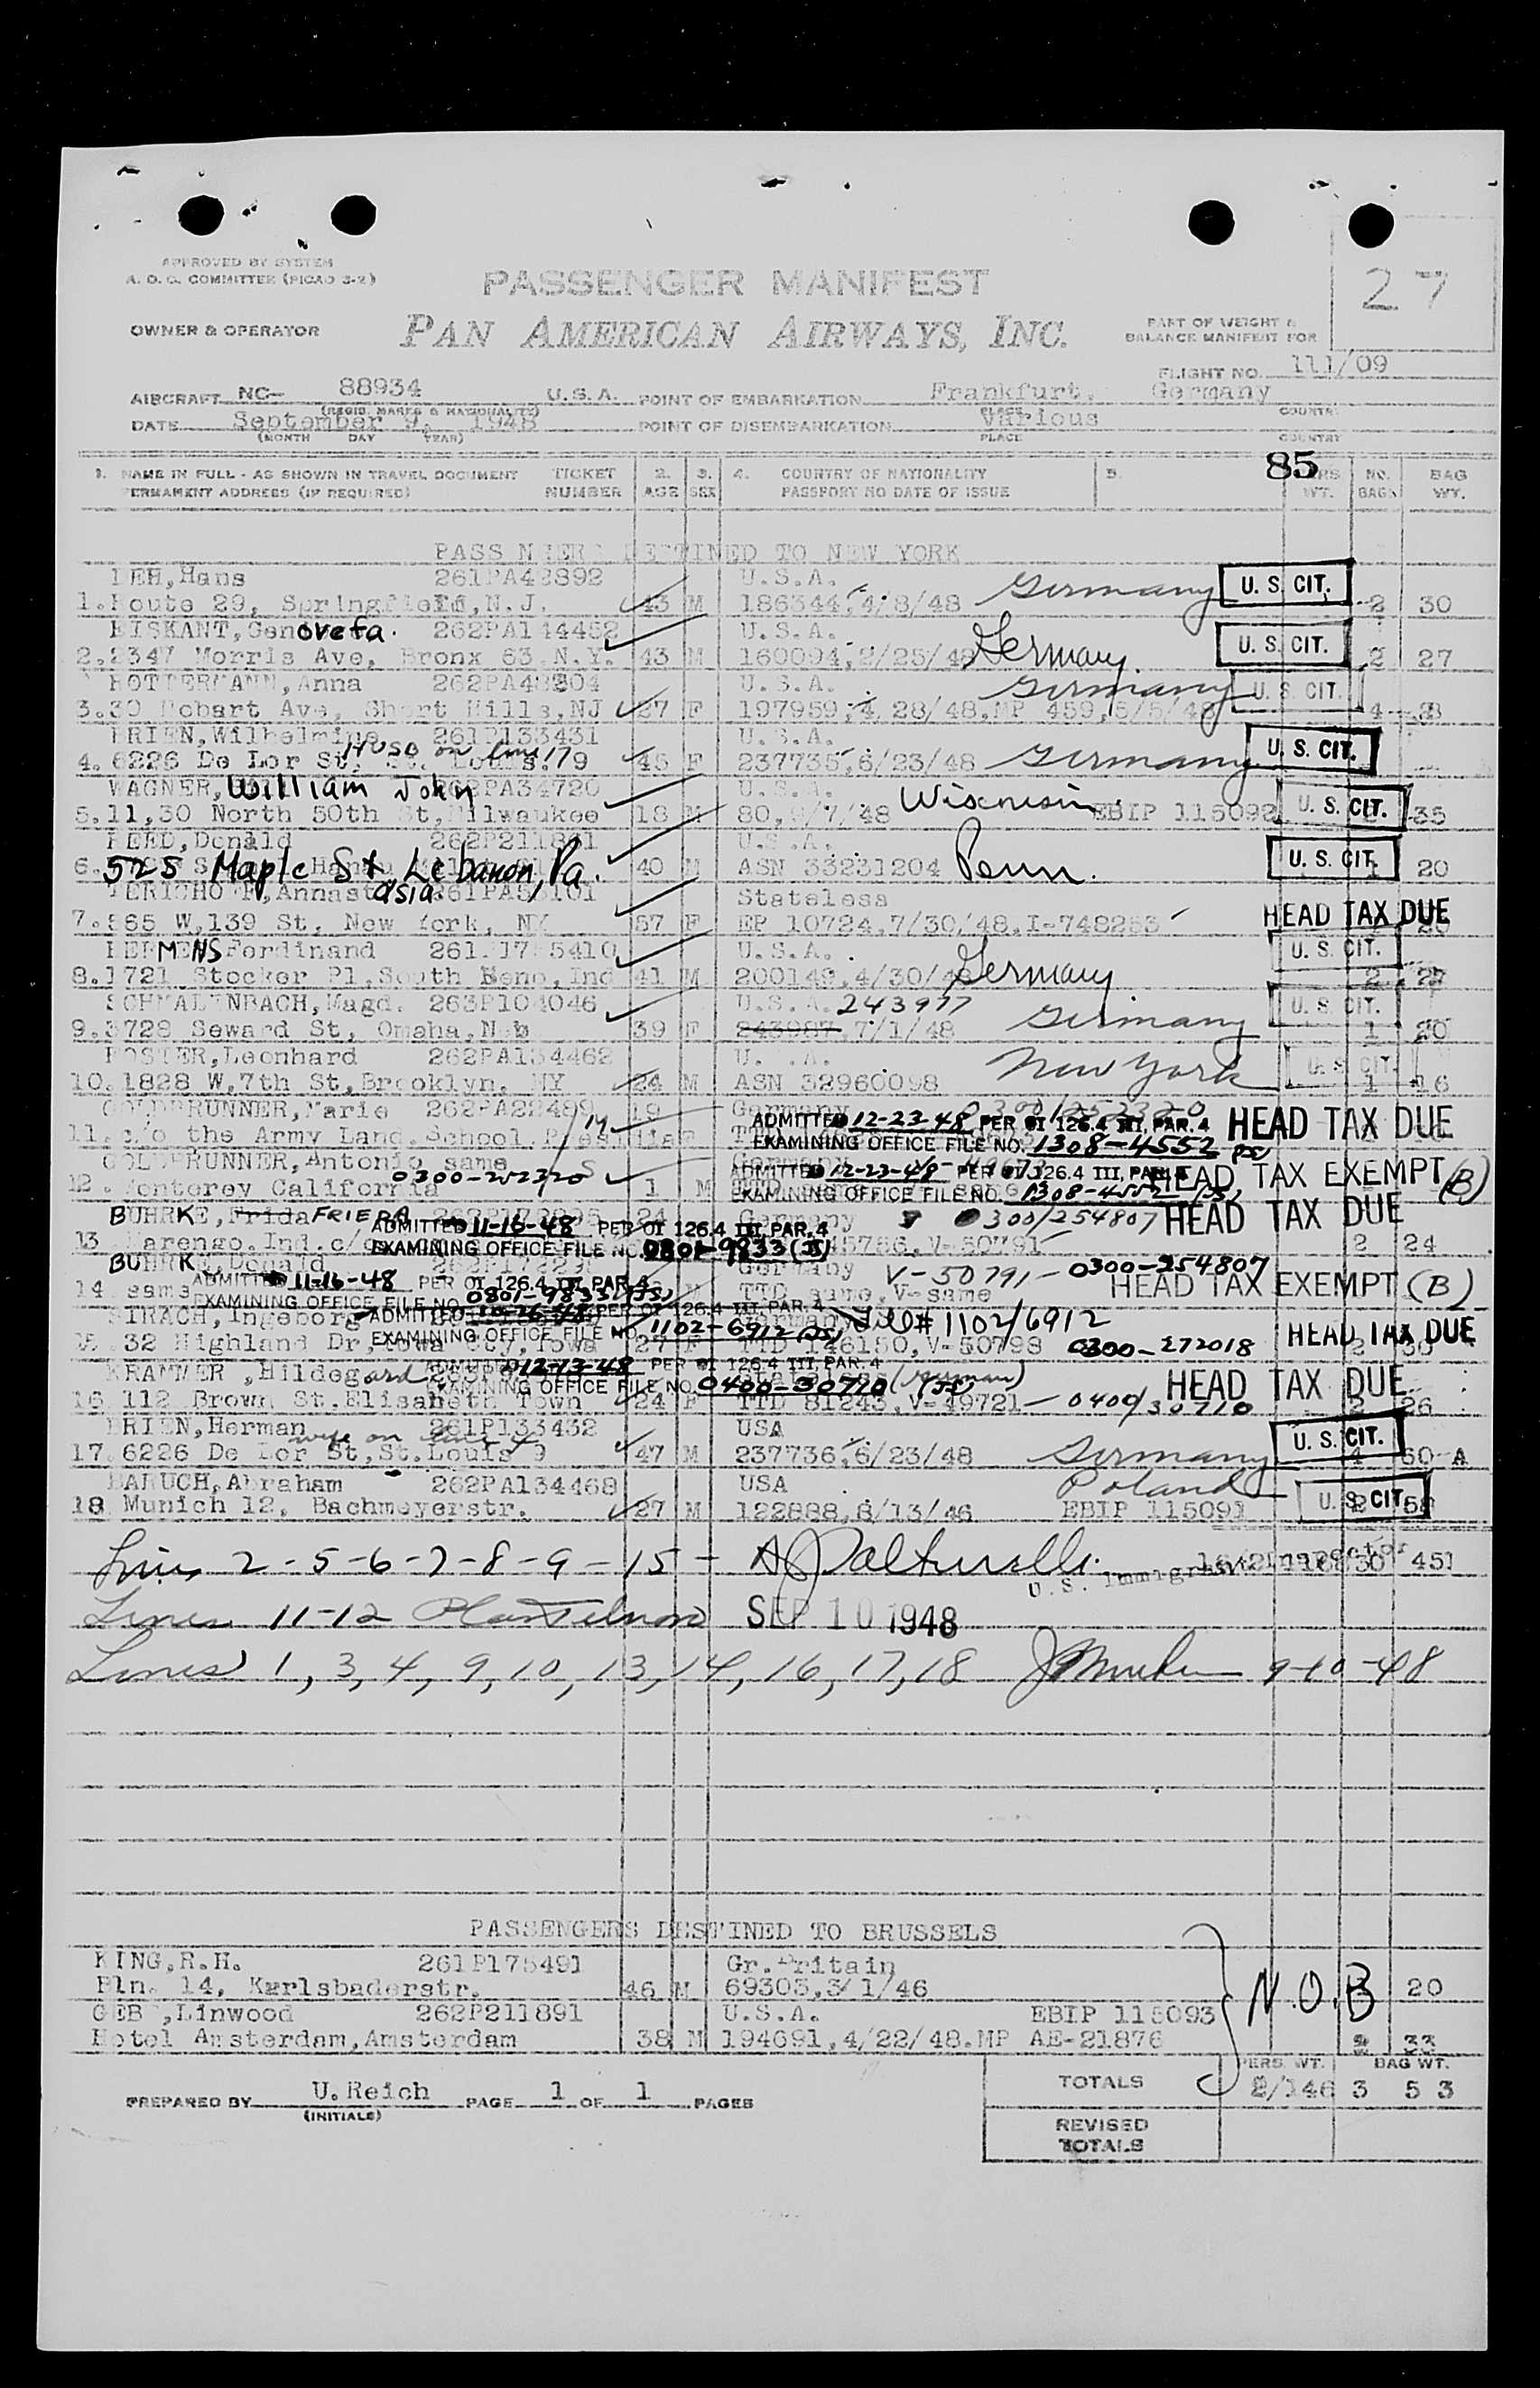 APPROVED BY SYSTEM
A. O. C. COMMITTEE (PICAO 3-2)
PASSENGER MANIFEST
27
OWNER & OPERATOR
PAN AMERICAN AIRWAYS, INC.
PART OF WEIGHT &
BALANCE MANIFEST FOR
FLIGHT NO. 111/09
AIRCRAFT NC- 88934 U.S.A. POINT OF EMBARKATION Frankfurt, Germany
(REGIS. MARKS & NATIONALITY) PLACE COUNTRY
DATE September 9, 1948 POINT OF DISEMBARKATION Various
(MONTH DAY YEAR) PLACE COUNTRY
85
1. NAME IN FULL - AS SHOWN IN TRAVEL DOCUMENT TICKET 2. 3. 4. COUNTRY OF NATIONALITY 5. NO. BAG
PERMANENT ADDRESS (IF REQUIRED) NUMBER AGE SEX PASSPORT NO DATE OF ISSUE WT. BAGS WT.
DESTINED TO NEW YORK
Hans U.S.A. Germany U. S. CIT.
1. Route 29, Springfield, N.J. 43 M 186344, 4/8/48 2 30
Genovefa. 262PA144452 U.S.A.
2. 2347 Morris Ave, Bronx 63 N.Y. 43 M 160094, 2/25/48 Germany. U. S. CIT. 2 27
Anna U.S.A. Germany U. S. CIT.
3. 30 Hobart Ave, Short Hills, NJ 27 F 197959, 4 28/48, MP 459,
Wilhelmine 261P133431 U.S.A.
Husb on line 17
4. 6226 De Lor St, St. Louis. 9 45 F 237735, 6/23/48 Germany U. S. CIT.
WAGNER, William John U.S.A. Wisconsin
5. 11,30 North 50th St, Milwaukee 18 M 80, /7/48 EBIP 115092 U. S. CIT. 35
REED, Donald U.S.A.
6. 525 Maple St Lebanon, Pa. 40 M ASN 33231204 Penn. U. S. CIT. 1 20
Annastasia Stateless
7. 565 W, 139 St, New York, NY 57 F EP 10724, 7/30/48, I-748253 HEAD TAX DUE
HERMENS Ferdinand U.S.A.
8. 1721 Stocker Pl, South Bend, Ind 41 M 200149, 4/30/48 Germany U. S. CIT. 2 27
SCHMALENBACH, Magd. 263P104046 U.S.A. 243977
9. 3728 Seward St, Omaha, Neb 39 F 243987, 7/1/48 Germany U. S. CIT. 1 20
Leonhard 262PA134462 U.S.A. New York
10. 1828 W, 7th St, Brooklyn, NY 24 M ASN 32960098 U. S. CIT. 1 16
GOLDBRUNNER, Marie 19 Germany 0300/252320
ADMITTED 12-23-48 PER OI 126.4 III, PAR. 4 HEAD TAX DUE
11. c/o the Army Lang. School
EXAMINING OFFICE FILE NO. 1308-4552
GOLDBRUNNER, Antonio, same
ADMITTED 12-23-48 PER OI 126.4 III, PAR. 4 HEAD TAX EXEMPT (B)
0300-252320
12. Monterey California 1 M
EXAMINING OFFICE FILE NO. 1308-4552
BUHRKE, Frida FRIEDA Germany 0300/254807 HEAD TAX DUE
ADMITTED 11-16-48 PER OI 126.4 III, PAR. 4
13 Marengo, Ind. c/o V-50791 2 24
EXAMINING OFFICE FILE NO. 0801-9833 (JS)
BUHRKE, Donald Germany V-50791 - 0300-254807
ADMITTED 11-16-48 PER OI 126.4 III, PAR. 4 HEAD TAX EXEMPT (B)
14 same TTD same, V-same
EXAMINING OFFICE FILE NO. 0801-9833 (JS)
STRACH, Ingeborg Germany File # 1102/6912
ADMITTED PER OI 126.4 III, PAR. 4
EXAMINING OFFICE FILE NO. 1102-6912 (JS)
15. 32 Highland Dr, Iowa Cty, Iowa 27 F TTD 146150, V-50798 0300-272018 HEAD TAX DUE 2 30
KRAMMER, Hildegard Stateless (German)
ADMITTED 12-13-48 PER OI 126.4 III, PAR. 4
EXAMINING OFFICE FILE NO. 0400-30710 (JS) HEAD TAX DUE
16 112 Brown St. Elisabeth Town 24 F TTD 81243, V-49721 - 0400/30710 2 26
Herman 261P133432 USA
wife on line 4
17. 6226 De Lor St, St. Louis 9 47 M 237736, 6/23/48 Germany U. S. CIT. 4 60 A
BARUCH, Abraham 262PA134468 USA Poland
18 Munich 12, Bachmeyerstr. 27 M 122888, 8/13/46 EBIP 115091 U. S. CIT. 58
Lines 2-5-6-7-8-9-15 - 451
U.S. Immigrant Inspector
Lines 11-12 SEP 10 1948
Lines 1, 3, 4, 9, 10, 13, 14, 16, 17, 18 9-10-48
PASSENGERS DESTINED TO BRUSSELS
KING, R.H. 261P175491 Gr. Britain
Pln. 14, Karlsbaderstr. 46 M 69303, 3/1/46 N.O.B 20
Linwood 262P211891 U.S.A. EBIP 115093
Hotel Amsterdam, Amsterdam 38 M 194691, 4/22/48. MP AE-21876 2 33
PERS. WT. BAG WT.
TOTALS 2/146 3 53
PREPARED BY U. Reich PAGE 1 OF 1 PAGES
(INITIALS)
REVISED
TOTALS